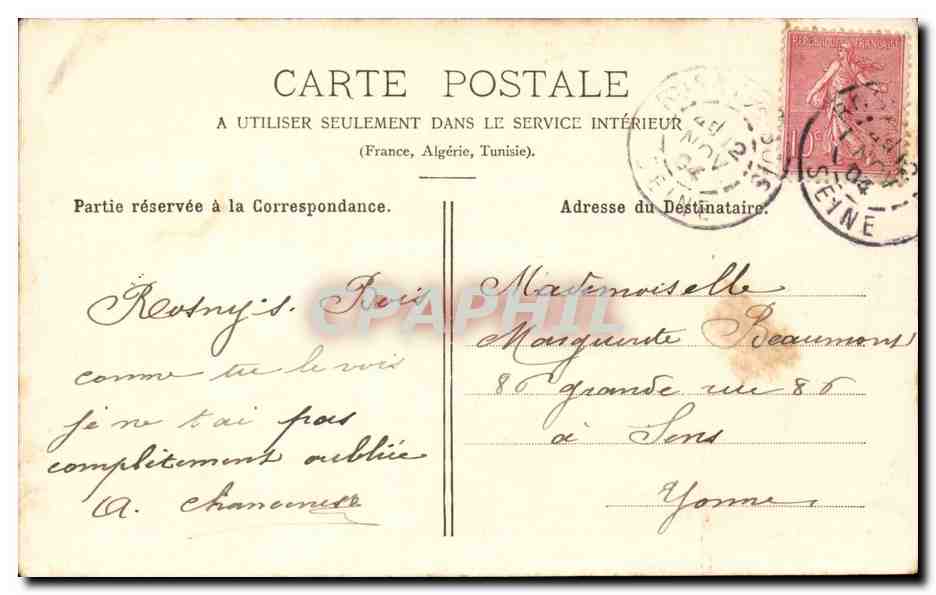 RÉPUBLIQUE FRANÇAISE
10c
CARTE POSTALE
A UTILISER SEULEMENT DANS LE SERVICE INTÉRIEUR
(France, Algérie, Tunisie).
12
NOV
04
SEINE
NOV
04
SEINE
Partie réservée à la Correspondance.
Adresse du Destinataire.
CPAPHIL
Rosny s. Bois
comme tu le vois
je ne t'ai pas
complètement oubliée
A.
Mademoiselle
Marguerite Beaumont
86 grande rue 86
à Sens
Yonne